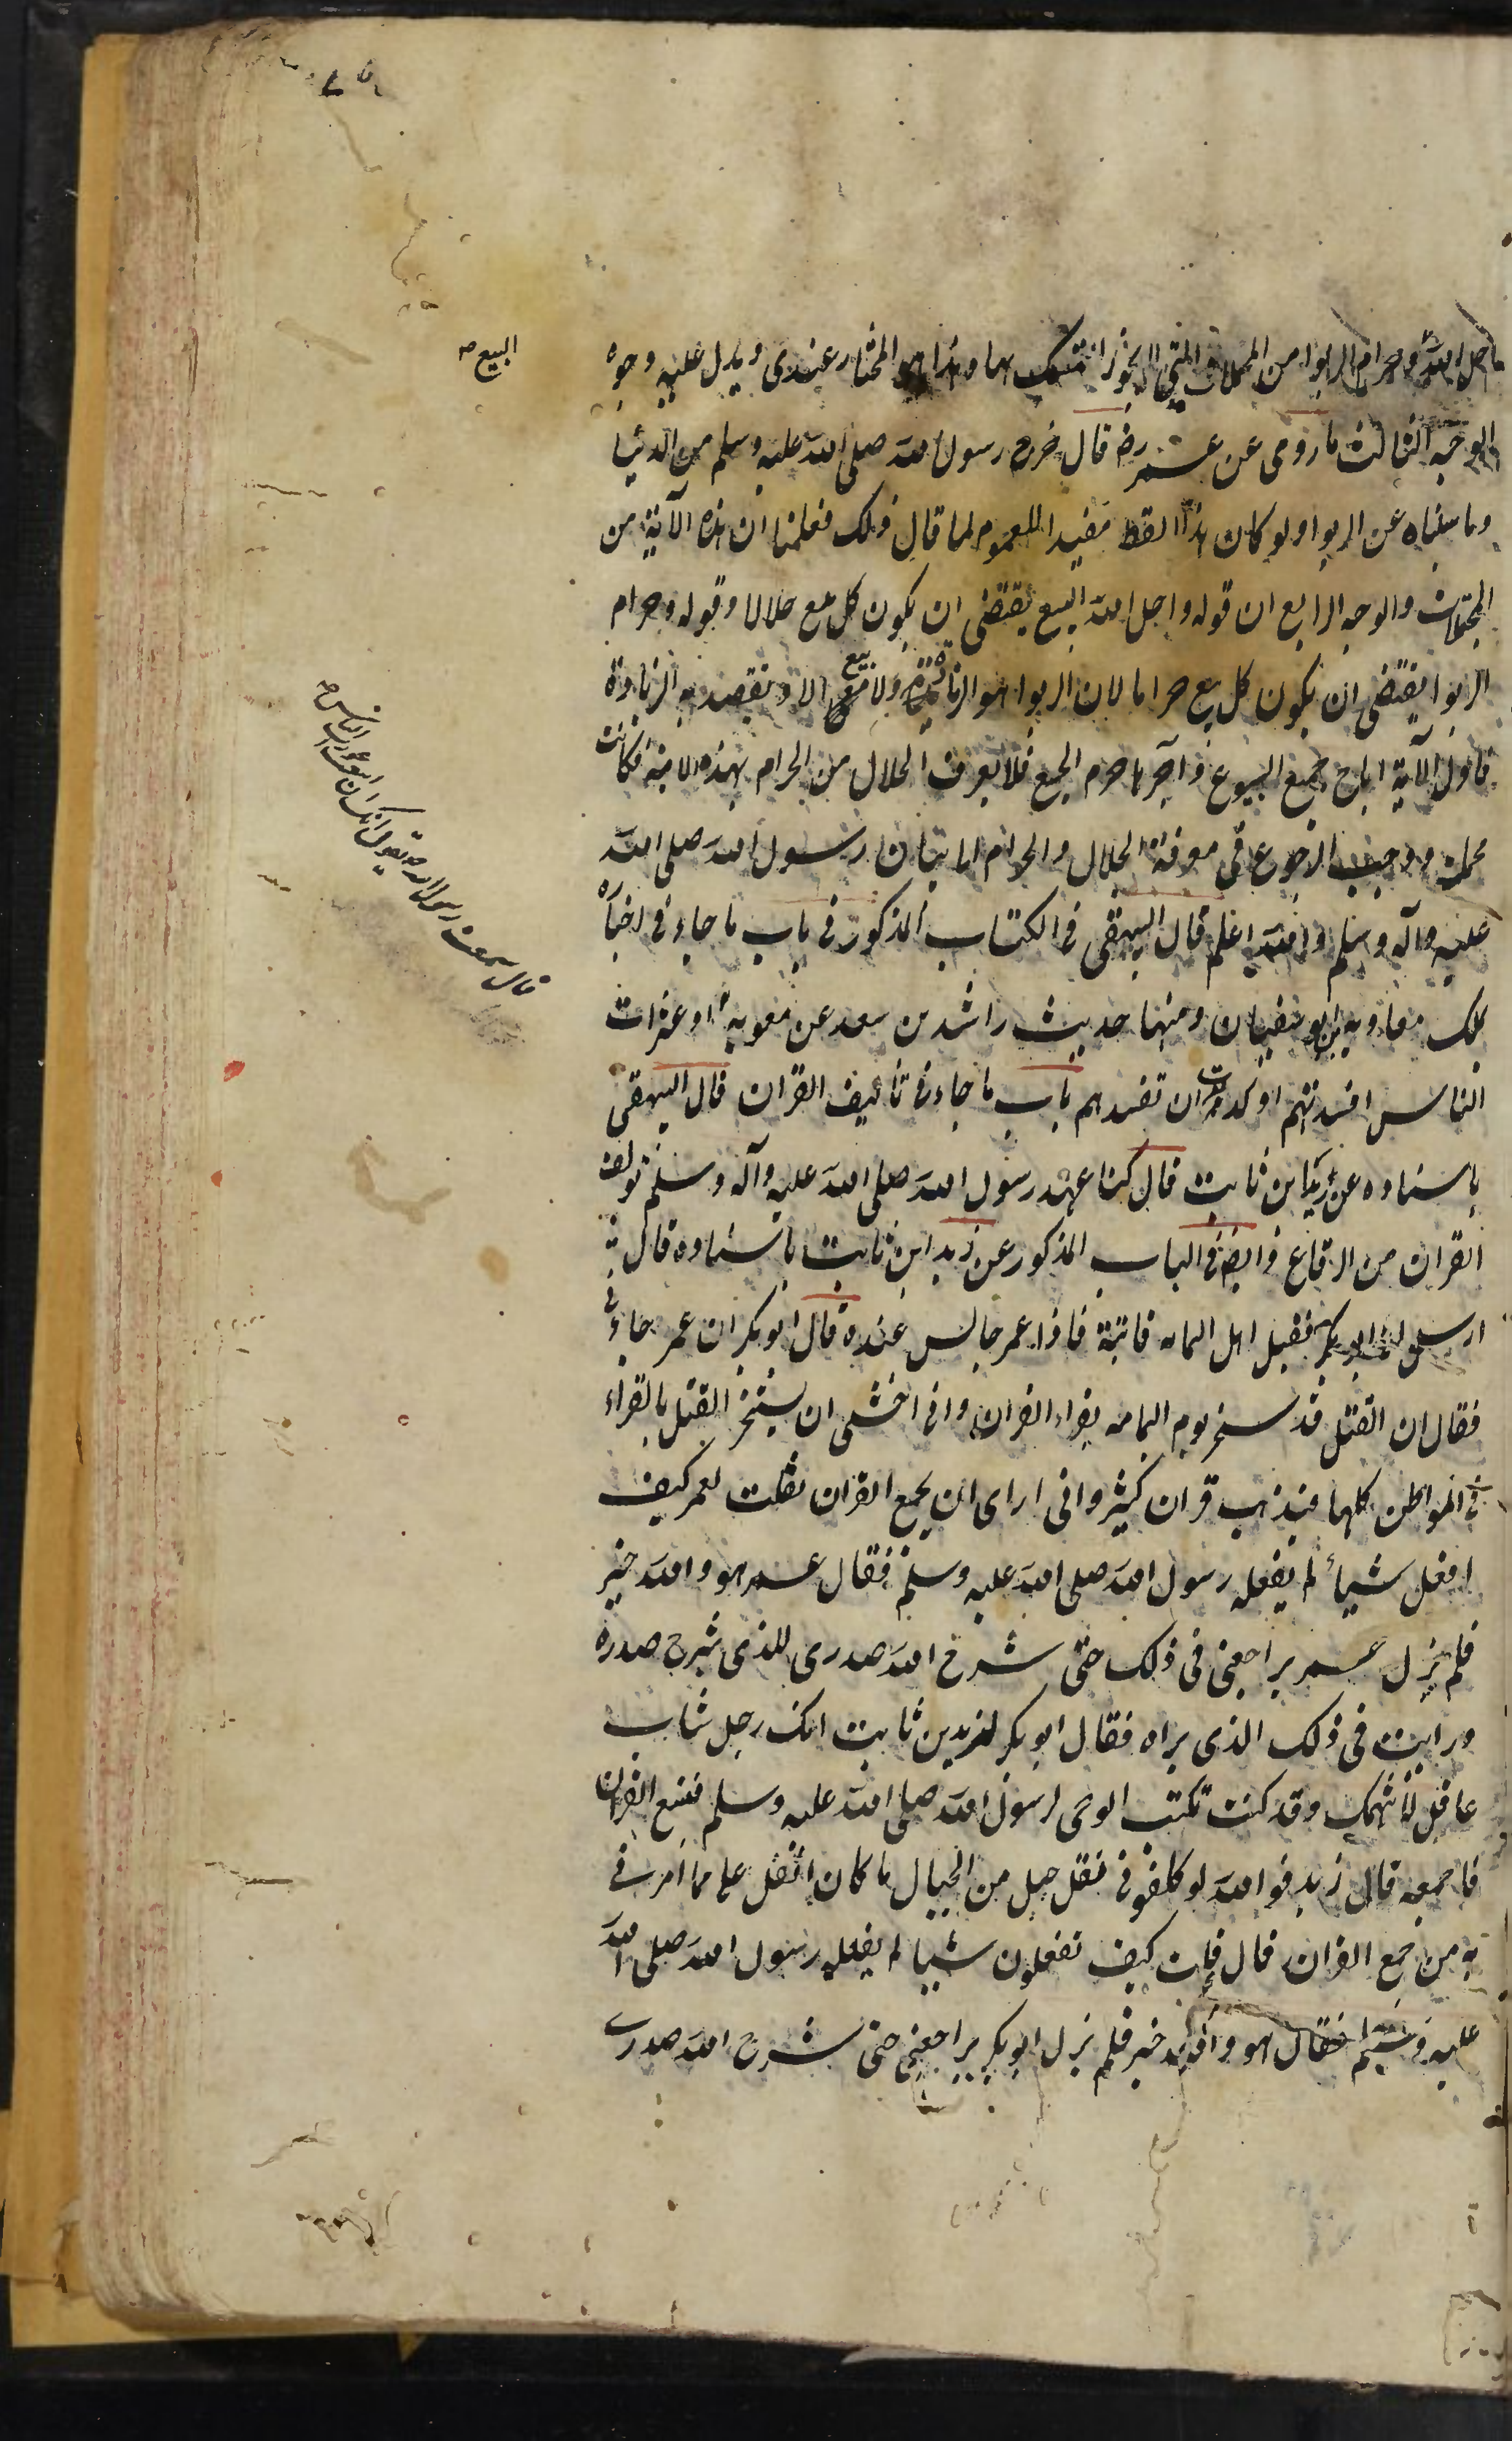 ما احل الله وحرام الربوا من المجملات التي لا يجوز التمسك بها وهذا هو المختار عندى ويدل عليه وجوه
البيع صح
الوجه الثالث ما روى عن عمر رض قال خرج رسول الله صلى الله عليه وسلم من الدنيا
وما سئلناه عن الربوا ولو كان هذا اللفظ مفيدا للعموم لما قال ذلك فعلمنا ان هذه الآية من
المجملات والوجه الرابع ان قوله واحل الله البيع يقتضى ان يكون كل بيع حلالا وقوله وحرام
الربوا يقتضى ان يكون كل بيع حراما لان الربوا هو الزيادة ولا بيع الا ويقصد به الزيادة
فاول الآية اباح جميع البيوع وآخرها حرم الجميع فلا يعرف الحلال من الحرام بهذه الاية فكانت
مجملة ووجب الرجوع في معرفة الحلال والحرام الى بيان رسول الله صلى الله
عليه وآله وسلم والله اعلم قال البيهقى فى الكتاب المذكور فى باب ما جاء فى اخباره
بملك معاوية بن ابو سفيان ومنها حديث راشد بن سعد عن معوية او عثرات
الناس افسدتهم او كدت ان تفسدهم باب ما جاء فى تاليف القرآن قال البيهقى
باسناده عن زيد ابن ثابت قال كنا عهد رسول الله صلى الله عليه وآله وسلم نولف
القران من الرقاع وايض فى الباب المذكور عن زيد ابن ثابت باسناده قال
ارسل ابو بكر فقبل اهل اليمامه فاتيته فاذا عمر جالس عنده قال ابو بكر ان عمر جاءنى
فقال ان القتل قد سحر يوم اليمامه بقراء القران وانى اخشى ان يستحر القتل بالقراء
فى المواطن كلها فيذهب قران كثير وانى ارى ان يجمع القران فقلت لعمر كيف
افعل شيأ لم يفعله رسول الله صلى الله عليه وسلم فقال عمر هو والله خير
فلم يزل عمر يراجعنى فى ذلك حتى شرح الله صدرى للذى شرح صدره
ورايت فى ذلك الذى يراه فقال ابو بكر لزيد بن ثابت انك رجل شاب
عاقل لا نتهمك وقد كنت تكتب الوحى لرسول الله صلى الله عليه وسلم فتتبع القران
فاجمعه قال زيد فوالله لو كلفونى نقل جبل من الجبال ما كان اثقل على مما امرنى
به من جمع القران قال قلت كيف تفعلون شيئا لم يفعله رسول الله صلى الله
عليه وسلم فقال هو والله خير فلم يزل ابو بكر يراجعنى حتى شرح الله صدرى
قال سمعت رسول الله ص يقول انك ان اتبعت عورات الناس صح